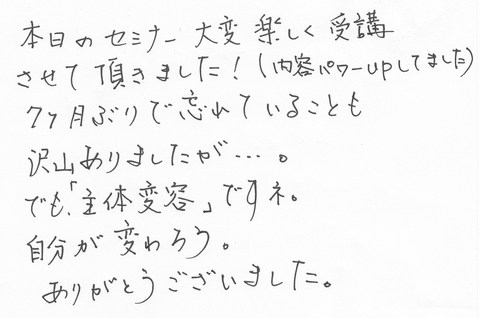 本日のセミナー大変楽しく受講
させて頂きました!(内容パワーupしてました)
7ヶ月ぶりで忘れていることも
沢山ありましたが…。
でも、「主体変容」ですネ。
自分が変わろう。
ありがとうございました。